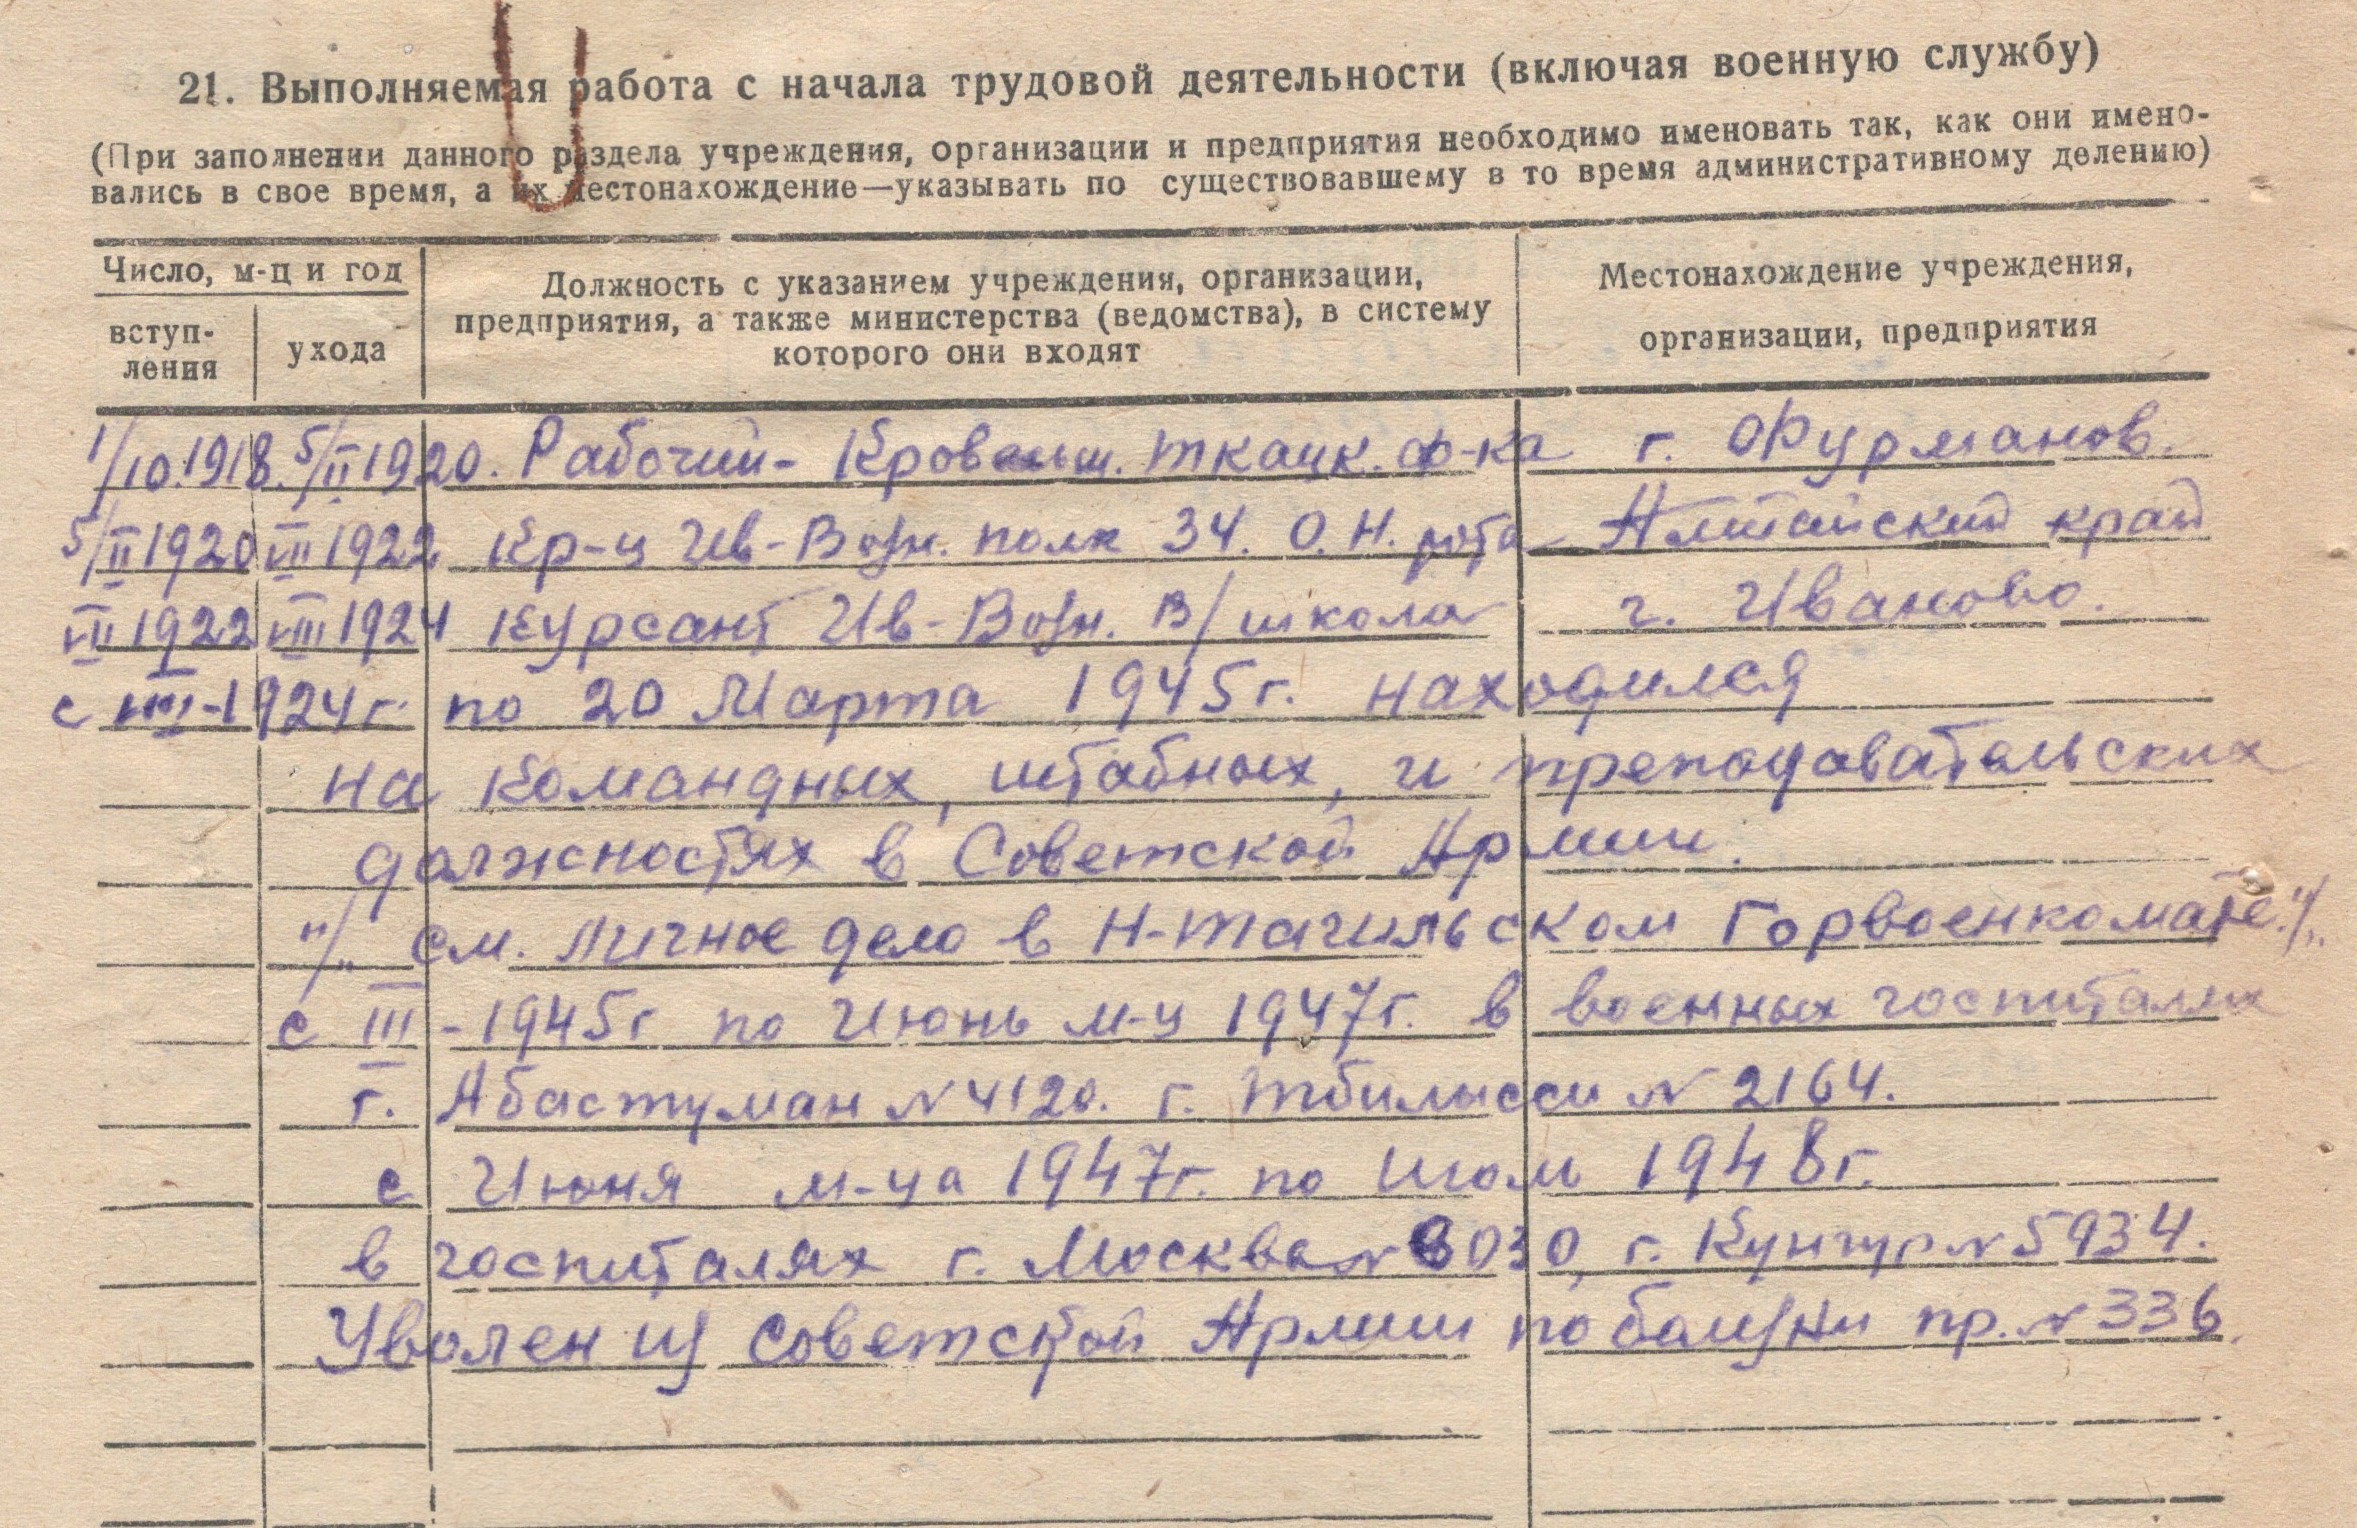 21. Выполняемая работа с начала трудовой деятельности (включая военную службу)
(При заполнении данного раздела учреждения, организации и предприятия необходимо именовать так, как они имено-
вались в свое время, а их местонахождение—указывать по существовавшему в то время административному делению)
Число, м-ц и год
вступ-
ления
ухода
Должность с указанием учреждения, организации,
предприятия, а также министерства (ведомства), в систему
которого они входят
Местонахождение учреждения,
организации, предприятия
1/10.1918. 5/II 1920. Рабочий- ткацк. ф-ка г. Фурманов.
5/II 1920 VII 1922 Кр-ц Ив-Возн. полк 34. О.Н. рота Алтайский край
VII 1922 VIII 1924 Курсант Ив-Возн. в/школа г. Иваново.
с VIII-1924г. по 20 Марта 1945г. находился
на командных, штабных, и преподавательских
должностях в Советской Армии.
"/„ см. личное дело в Н-Тагильском Горвоенкомате."/„
с III-1945г по Июнь м-ц 1947г. в военных госпиталях
г. Абастуман N 4120. г. Тбилисси N 2164.
с Июня м-ца 1947г. по Июль 1948г.
в госпиталях г. Москва N 3030, г. Кунгур N 5934.
Уволен из Советской Армии по болезни пр. N 336.